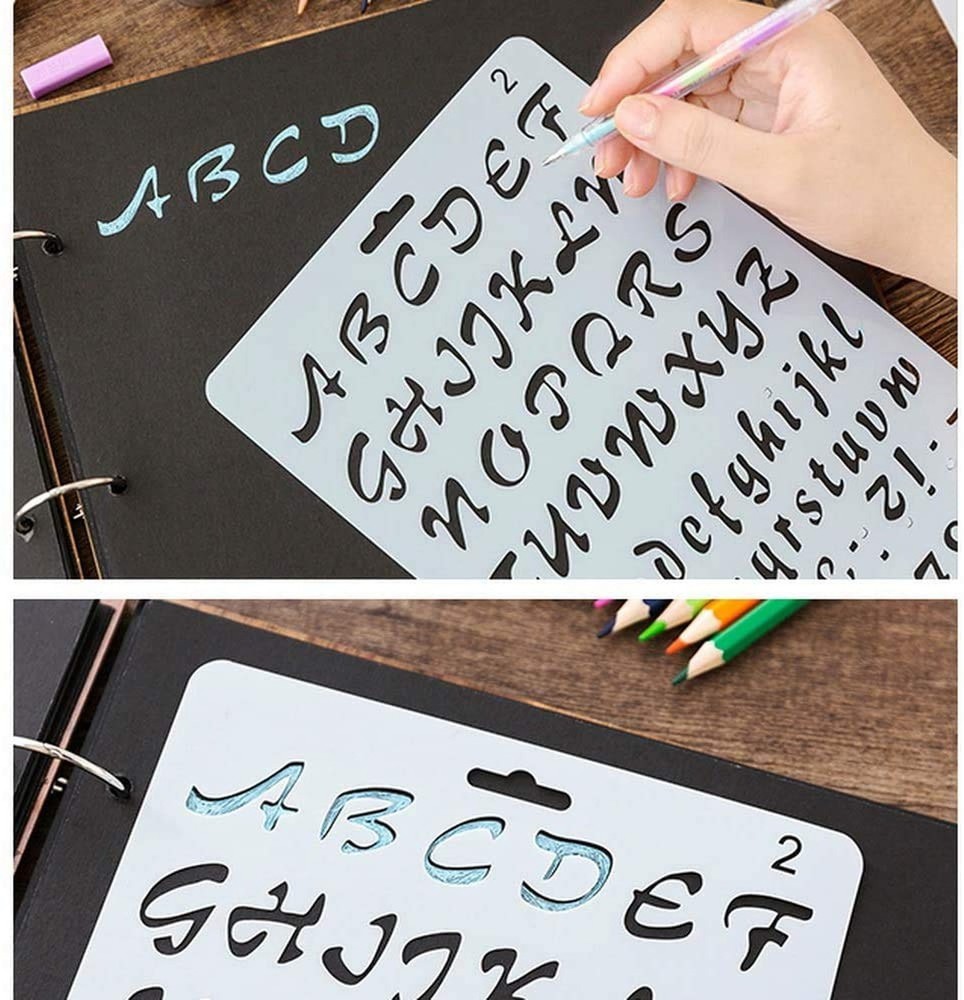 A B C D
2
A B C D E F
G H I J K L M
N O P Q R S
T U V W X Y Z
d e f g h i j k l
q r s t u v w
z ! .
2
A B C D E F
G H I J K